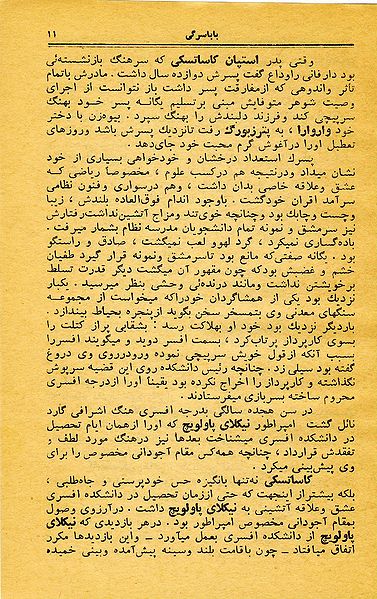 ۱۱ باباسرگی
وقتی پدر استپان کاساتسکی که سرهنگ بازنشسته‌ئی
بود دارفانی راوداع گفت پسرش دوازده سال داشت . مادرش باتمام
تأثر واندوهی که ازمفارقت پسر داشت باز نتوانست از اجرای
وصیت شوهر متوفایش مبنی برتسلیم یگانه پسر خود بهنگ
سرپیچی کند وفرزند دلبندش را بهنگ سپرد . بیوه‌زن با دختر
خود واروارا ، به پترزبورگ رفت تانزدیك پسرش باشد وروزهای
تعطیل اورا درآغوش گرم محبت خود جای‌دهد .
پسرك استعداد درخشان و خودخواهی بسیاری از خود
نشان میداد ودرنتیجه هم درکسب علوم ، مخصوصاً ریاضی که
عشق وعلاقه خاصی بدان داشت ، وهم درسواری وفنون نظامی
سرآمد اقران خودگشت . باوجود اندام فوق‌العاده بلندش ، زیبا
وچست وچابك بود وچنانچه خوی‌تند ومزاج آتشین‌نداشت‌رفتارش
نیز سرمشق و نمونه تمام دانشجویان مدرسه نظام بشمار میرفت .
باده‌گساری نمیکرد ، گرد لهوو لعب نمیگشت ، صادق و راستگو
بود . یگانه صفتی‌که مانع بود تاسرمشق ونمونه قرار گیرد طغیان
خشم و غضبش بودکه چون مقهور آن میگشت دیگر قدرت تسلط
برخویشتن نداشت ومانند درنده‌ئی وحشی بنظر میرسید . یکبار
نزدیك بود یکی از همشاگردان خودراکه میخواست از مجموعه
سنگهای معدنی وی بتمسخر سخن بگوید ازپنجره بحیاط بیندازد .
باردیگر نزدیك بود خود او بهلاکت رسد : بشقابی پراز کتلت را
بسوی کارپرداز پرتاب‌کرد ، بسمت افسر دوید و میگویند افسررا
بسبب آنکه ازقول خویش سرپیچی نموده ورودرروی وی دروغ
گفته بود سیلی زد . چنانچه رئیس دانشکده روی این قضیه سرپوش
نگذاشته و کارپرداز را اخراج نکرده بود یقیناً اورا ازدرجه افسری
محروم ساخته بسربازی میفرستادند .
در سن هجده سالگی بدرجه افسری هنگ اشرافی گارد
نائل گشت امپراطور نیکلای پاولویچ که اورا ازهمان ایام تحصیل
در دانشکده افسری میشناخت بعدها نیز درهنگ مورد لطف و
تفقدش قرارداد ، چنانچه همه‌کس مقام آجودانی مخصوص را برای
وی پیش‌بینی میکرد .
کاساتسکی نه‌تنها بانگیزه حس خودپرستی و جاه‌طلبی ،
بلکه بیشتر از اینجهت که حتی اززمان تحصیل در دانشکده افسری
عشق وعلاقه آتشینی به نیکلای پاولویچ داشت . درآرزوی وصول
بمقام آجودانی مخصوص امپراطور بود . درهر بازدیدی که نیکلای
پاولویچ از دانشکده افسری بعمل میآورد ــ واین بازدیدها مکرر
اتفاق میافتاد ــ چون باقامت بلند وسینه پیش‌آمده وبینی خمیده